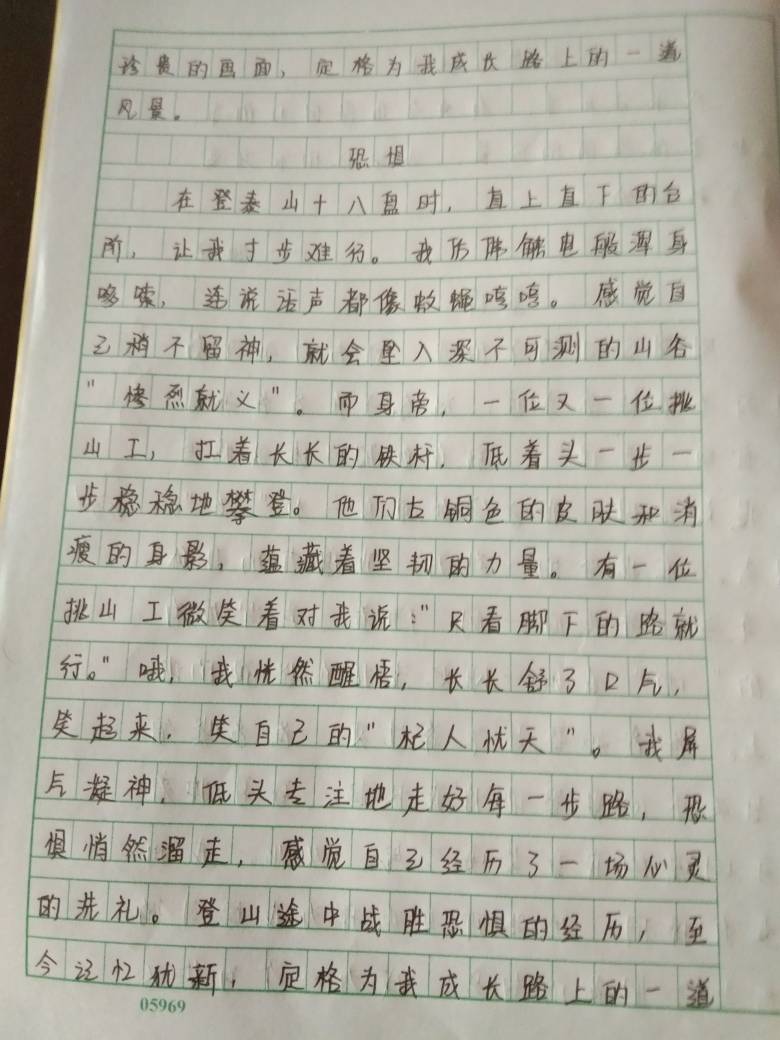 珍贵的画面，定格为我成长路上的一道
风景。
恐惧
在登泰山十八盘时，直上直下的台
阶，让我寸步难行。我仿佛触电般浑身
哆嗦，连说话声都像蚊蝇嘻嘻。感觉自
己稍不留神，就会坠入深不可测的山谷
"慷烈就义"。而身旁，一位又一位挑
山工，扛着长长的铁杆，低着头一步一
步稳稳地攀登。他们古铜色的皮肤和消
瘦的身影，蕴藏着坚韧的力量。有一位
挑山工微笑着对我说："只看脚下的路就
行。"哦，我恍然醒悟，长长舒了口气，
笑起来，笑自己的"杞人忧天"。我屏
气凝神，低头专注地走好每一步路，恐
惧悄然溜走，感觉自己经历了一场心灵
的洗礼。登山途中战胜恐惧的经历，至
今记忆犹新，定格为我成长路上的一道
05969